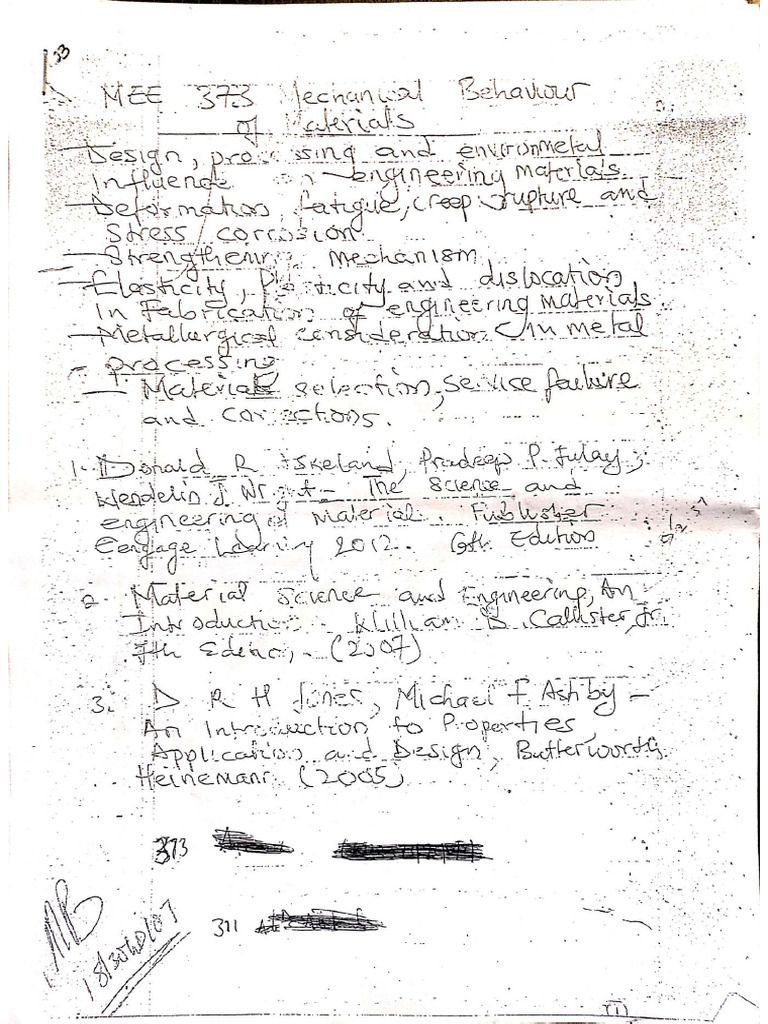 33
MEE 373 Mechanical Behaviour
of Materials
- Design, processing and environmetal
Influence on engineering materials
- Deformation, fatigue, creep rupture and
Stress corrosion
- Strengthening mechanism
- Elasticity, Plasticity and dislocation
In Fabrication of engineering materials
- Metallurgical consideration in metal
- processing
- Materials selection, service failure
and corrections.
1. Donald R Askeland, Pradeep P. Fulay,
Wendelin J. Wright - The Science and
engineering of Material. Publisher
Cengage Learning 2012. 6th Edition
2 Material Science and Engineering, An
Introduction. William D. Callister, Jr.
7th Edition, - (2007)
3. D R H Jones, Michael F Ashby -
An Introduction to Properties
Application and Design, Butterworth
Heinemann (2005)
373
311
(1)